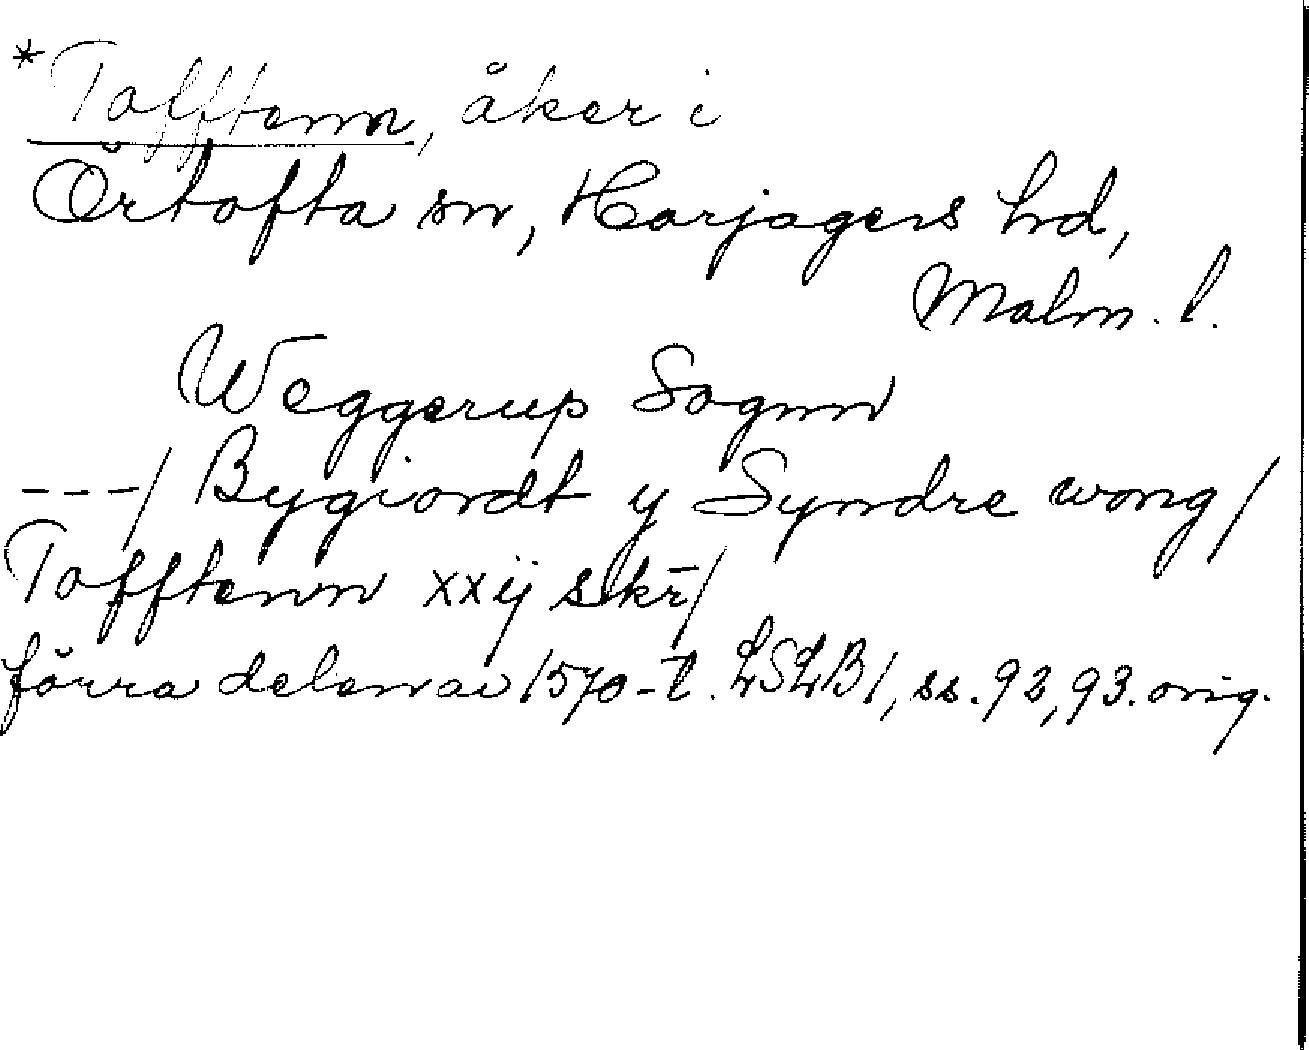 *Tofftenn, åker i
Örtofta sn, Harjagers hd,
Malm. l.
Weggerup Sognn
---/ Bygiordt y Syndre wong/
Tofftenn xxij skr̄/
förra delen av 1570-t. LSLB1, ss. 92, 93. orig.